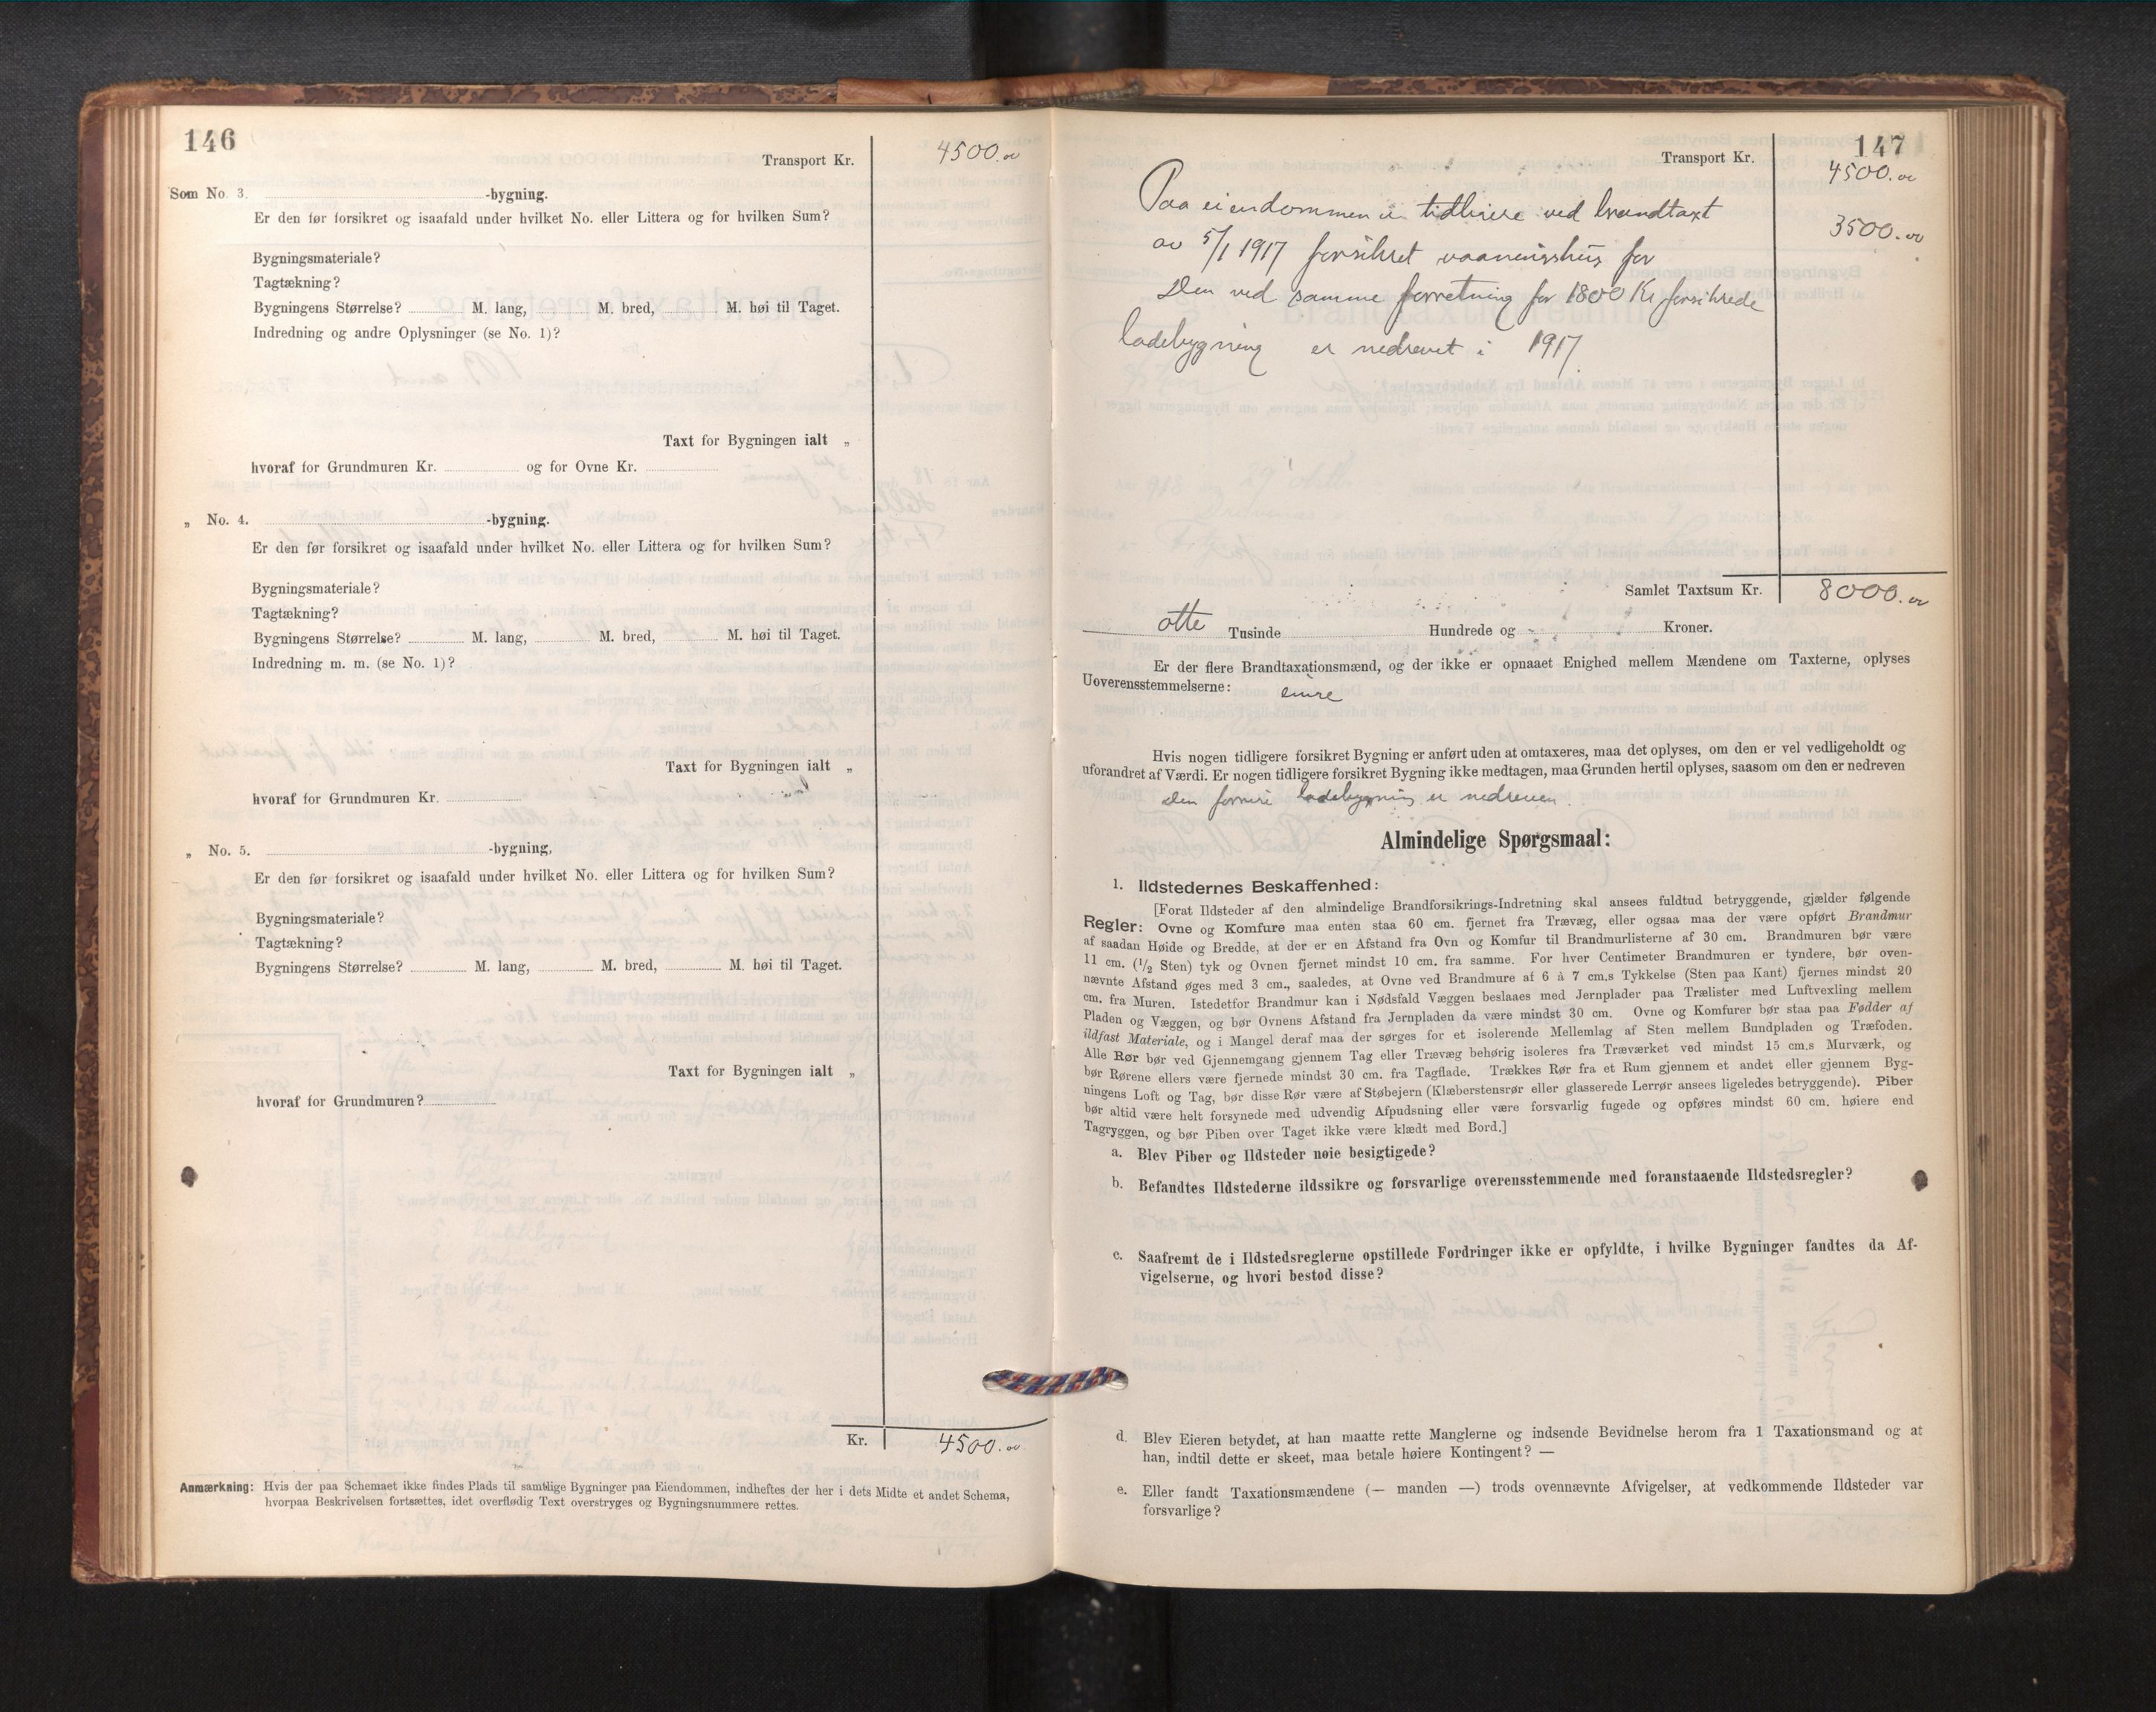 146
Transport Kr. 4500.00
Som No. 3. -bygning.
Er den før forsikret og isaafald under hvilket No. eller Littera og for hvilken Sum?
Bygningsmateriale?
Tagtækning?
Bygningens Størrelse? M. lang, M. bred, M. høi til Taget.
Indredning og andre Oplysninger (se No. 1)?
Taxt for Bygningen ialt „
hvoraf for Grundmuren Kr. og for Ovne Kr.
„ No. 4. -bygning.
Er den før forsikret og isaafald under hvilket No. eller Littera og for hvilken Sum?
Bygningsmateriale?
Tagtækning?
Bygningens Størrelse? M. lang, M. bred, M. høi til Taget.
Indredning m. m. (se No. 1)?
Taxt for Bygningen ialt „
hvoraf for Grundmuren Kr.
„ No. 5. -bygning,
Er den før forsikret og isaafald under hvilket No. eller Littera og for hvilken Sum?
Bygningsmateriale?
Tagtækning?
Bygningens Størrelse? M. lang, M. bred, M. høi til Taget.
Taxt for Bygningen ialt „
hvoraf for Grundmuren?
Kr. 4500.00
Anmærkning: Hvis der paa Schemaet ikke findes Plads til samtlige Bygninger paa Eiendommen, indheftes der her i dets Midte et andet Schema,
hvorpaa Beskrivelsen fortsættes, idet overflødig Text overstryges og Bygningsnummere rettes.
147
Transport Kr. 4500.00
Paa eiendommen er tidligere ved brandtaxt
av 5/1 1917 forsikret vaaningshus for 3500.00
Den ved samme forretning for 1800 Kr forsikrede
ladebygning er nedrevet i 1917.
Samlet Taxtsum Kr. 8000.00
otte Tusinde Hundrede og Kroner.
Er der flere Brandtaxationsmænd, og der ikke er opnaaet Enighed mellem Mændene om Taxterne, oplyses
Uoverensstemmelserne: enige
Hvis nogen tidligere forsikret Bygning er anført uden at omtaxeres, maa det oplyses, om den er vel vedligeholdt og
uforandret af Værdi. Er nogen tidligere forsikret Bygning ikke medtagen, maa Grunden hertil oplyses, saasom om den er nedreven
Den forrige ladebygning er nedreven.
Almindelige Spørgsmaal:
1. Ildstedernes Beskaffenhed:
[Forat Ildsteder af den almindelige Brandforsikrings-Indretning skal ansees fuldtud betryggende, gjælder følgende
Regler: Ovne og Komfure maa enten staa 60 cm. fjernet fra Trævæg, eller ogsaa maa der være opført Brandmur
af saadan Høide og Bredde, at der er en Afstand fra Ovn og Komfur til Brandmurlisterne af 30 cm. Brandmuren bør være
11 cm. (1/2 Sten) tyk og Ovnen fjernet mindst 10 cm. fra samme. For hver Centimeter Brandmuren er tyndere, bør oven-
nævnte Afstand øges med 3 cm., saaledes, at Ovne ved Brandmure af 6 à 7 cm.s Tykkelse (Sten paa Kant) fjernes mindst 20
cm. fra Muren. Istedetfor Brandmur kan i Nødsfald Væggen beslaaes med Jernplader paa Trælister med Luftvexling mellem
Pladen og Væggen, og bør Ovnens Afstand fra Jernpladen da være mindst 30 cm. Ovne og Komfurer bør staa paa Fødder af
ildfast Materiale, og i Mangel deraf maa der sørges for et isolerende Mellemlag af Sten mellem Bundpladen og Træfoden.
Alle Rør bør ved Gjennemgang gjennem Tag eller Trævæg behørig isoleres fra Træværket ved mindst 15 cm.s Murværk, og
bør Rørene ellers være fjernede mindst 30 cm. fra Tagflade. Trækkes Rør fra et Rum gjennem et andet eller gjennem Byg-
ningens Loft og Tag, bør disse Rør være af Støbejern (Klæberstensrør eller glasserede Lerrør ansees ligeledes betryggende). Piber
bør altid være helt forsynede med udvendig Afpudsning eller være forsvarlig fugede og opføres mindst 60 cm. høiere end
Tagryggen, og bør Piben over Taget ikke være klædt med Bord.]
a. Blev Piber og Ildsteder nøie besigtigede?
b. Befandtes Ildstederne ildssikre og forsvarlige overensstemmende med foranstaaende Ildstedsregler?
c. Saafremt de i Ildstedsreglerne opstillede Fordringer ikke er opfyldte, i hvilke Bygninger fandtes da Af-
vigelserne, og hvori bestod disse?
d. Blev Eieren betydet, at han maatte rette Manglerne og indsende Bevidnelse herom fra 1 Taxationsmand og at
han, indtil dette er skeet, maa betale høiere Kontingent? —
e. Eller fandt Taxationsmændene (— manden —) trods ovennævnte Afvigelser, at vedkommende Ildsteder var
forsvarlige?